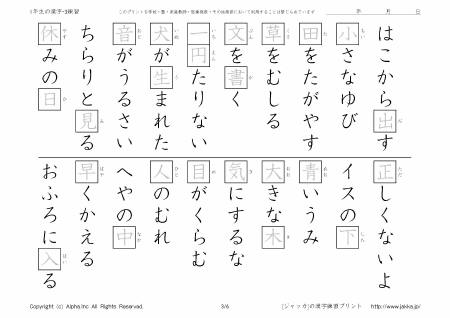 1年生の漢字-3練習
このプリントを学校・塾・家庭教師・医療機関・その他施設において利用することは禁じられています
年 月 日
はこから出す
だ
小さなゆび
ちい
田をたがやす
た
草をむしる
くさ
文を書く
ぶん か
一円たりない
いち えん
犬が生まれた
いぬ う
音がうるさい
おと
ちらりと見る
み
休みの日
やす ひ
正しくないよ
ただ
イスの下
した
青いうみ
あお
大きな木
おお き
気にするな
き
目がくらむ
め
人のむれ
ひと
へやの中
なか
早くかえる
はや
おふろに入る
はい
Copyright (c) Alpha.Inc All Rights Reserved.
3/6
[ジャッカ]の漢字練習プリント http://www.jakka.jp/